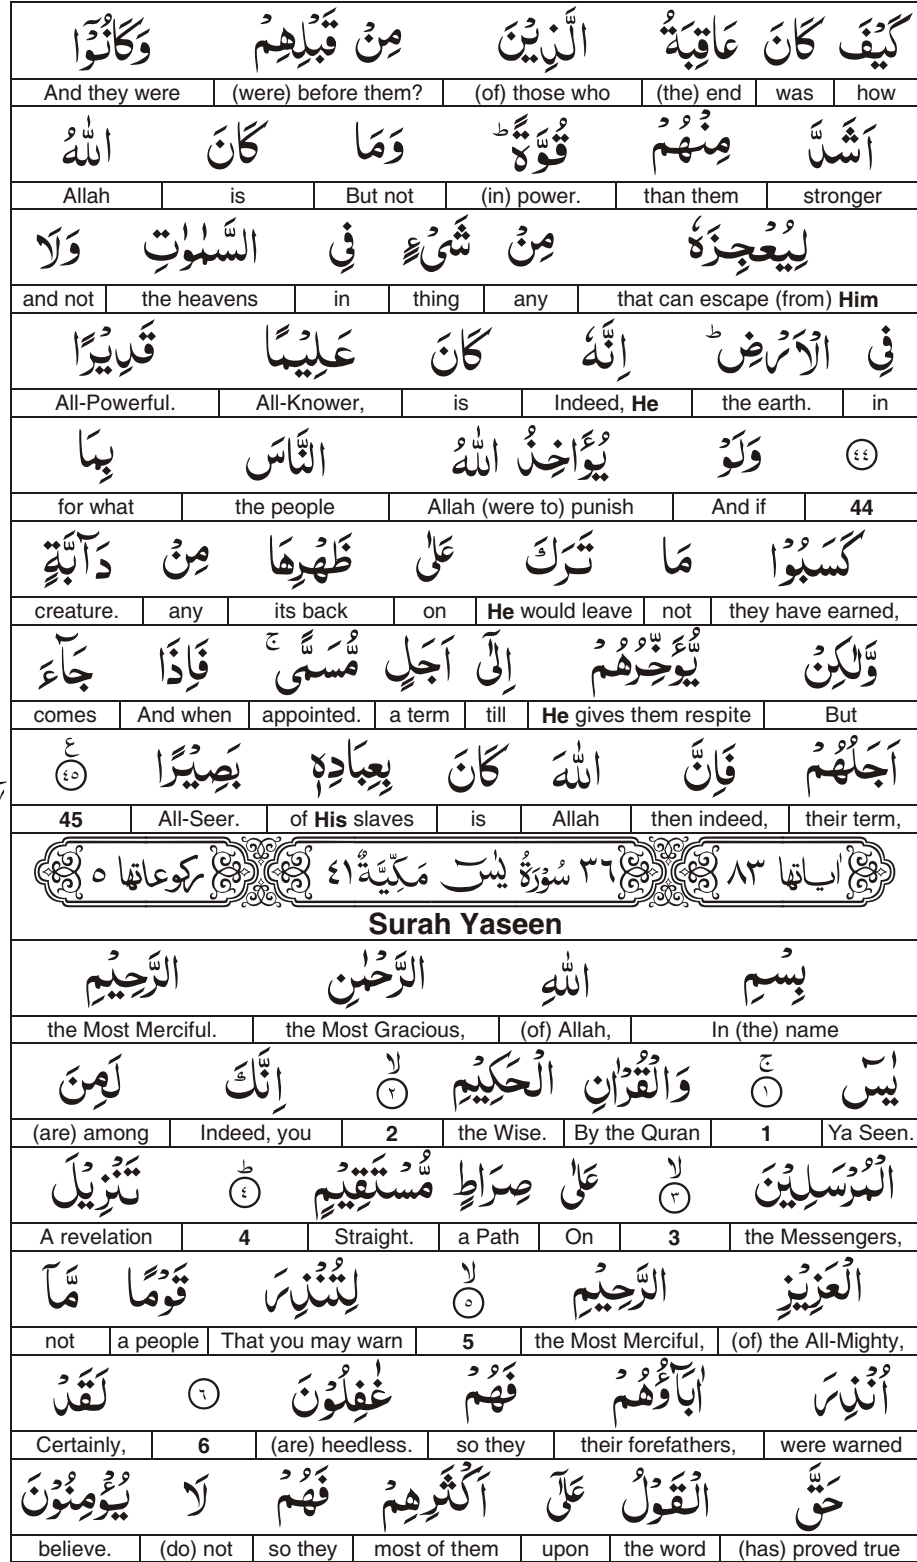 كَيۡفَ كَانَ عَاقِبَةُ الَّذِيۡنَ مِنۡ قَبۡلِهِمۡ وَكَانُوۡۤا
how was (the) end (of) those who (were) before them? And they were
اَشَدَّ مِنۡهُمۡ قُوَّةً ؕ وَمَا كَانَ اللّٰهُ
stronger than them (in) power. But not is Allah
لِيُعۡجِزَهٗ مِنۡ شَىۡءٍ فِى السَّمٰوٰتِ وَلَا
that can escape (from) Him any thing in the heavens and not
فِى الۡاَرۡضِ ؕ اِنَّهٗ كَانَ عَلِيۡمًا قَدِيۡرًا
in the earth. Indeed, He is All-Knower, All-Powerful.
٤٤ وَلَوۡ يُؤَاخِذُ اللّٰهُ النَّاسَ بِمَا
44 And if Allah (were to) punish the people for what
كَسَبُوۡا مَا تَرَكَ عَلٰى ظَهۡرِهَا مِنۡ دَآبَّةٍ
they have earned, not He would leave on its back any creature.
وَّلٰكِنۡ يُّؤَخِّرُهُمۡ اِلٰٓى اَجَلٍ مُّسَمًّى ۚ فَاِذَا جَآءَ
But He gives them respite till a term appointed. And when comes
اَجَلُهُمۡ فَاِنَّ اللّٰهَ كَانَ بِعِبَادِهٖ بَصِيۡرًا ٤٥ ع
their term, then indeed, Allah is of His slaves All-Seer. 45
اٰياتها ٨٣ ٣٦ سُوۡرَةُ يٰسٓ مَكِّيَّةٌ ٤١ ركوعاتها ٥
Surah Yaseen
بِسۡمِ اللّٰهِ الرَّحۡمٰنِ الرَّحِيۡمِ
In (the) name (of) Allah, the Most Gracious, the Most Merciful.
يٰسٓ ۚ ١ وَالۡقُرۡاٰنِ الۡحَكِيۡمِ ۙ ٢ اِنَّكَ لَمِنَ
Ya Seen. 1 By the Quran the Wise. 2 Indeed, you (are) among
الۡمُرۡسَلِيۡنَ ۙ ٣ عَلٰى صِرَاطٍ مُّسۡتَقِيۡمٍ ؕ ٤ تَنۡزِيۡلَ
the Messengers, 3 On a Path Straight. 4 A revelation
الۡعَزِيۡزِ الرَّحِيۡمِ ۙ ٥ لِتُنۡذِرَ قَوۡمًا مَّاۤ
(of) the All-Mighty, the Most Merciful, 5 That you may warn a people not
اُنۡذِرَ اٰبَآؤُهُمۡ فَهُمۡ غٰفِلُوۡنَ ٦ لَقَدۡ
were warned their forefathers, so they (are) heedless. 6 Certainly,
حَقَّ الۡقَوۡلُ عَلٰٓى اَكۡثَرِهِمۡ فَهُمۡ لَا يُؤۡمِنُوۡنَ
(has) proved true the word upon most of them so they (do) not believe.